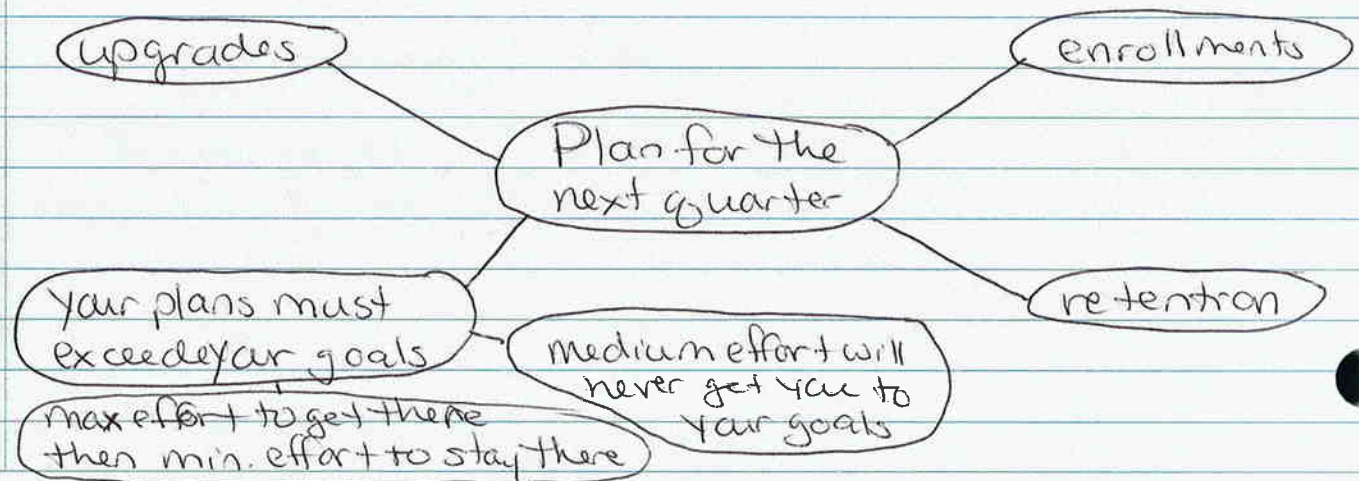 upgrades
enrollments
Plan for the
next quarter
your plans must
exceede your goals
retention
medium effort will
never get you to
your goals
max effort to get there
then min. effort to stay there